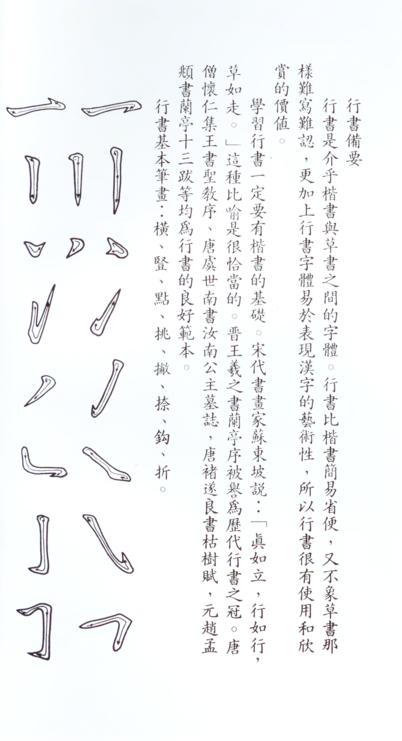 行書備要
行書是介乎楷書與草書之間的字體。行書比楷書簡易省便，又不象草書那
樣難寫難認，更加上行書字體易於表現漢字的藝術性，所以行書很有使用和欣
賞的價值。
學習行書一定要有楷書的基礎。宋代書畫家蘇東坡説：「眞如立，行如行，
草如走。」這種比喻是很恰當的。晋王羲之書蘭亭序被譽爲歷代行書之冠。唐
僧懷仁集王書聖教序、唐虞世南書汝南公主墓誌，唐褚遂良書枯樹賦，元趙孟
頫書蘭亭十三跋等均爲行書的良好範本。
行書基本筆畫：橫、豎、點、挑、撇、捺、鈎、折。